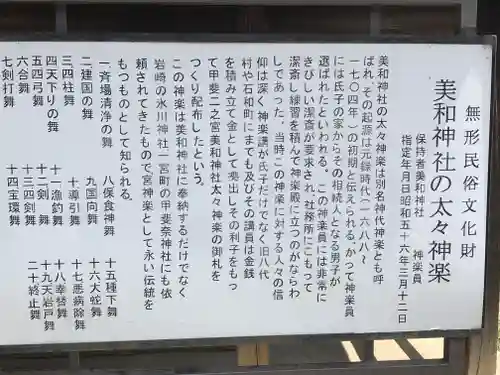 無形民俗文化財
美和神社の太々神楽
保持者美和神社　神楽員
指定年月日昭和五十六年三月十二日
美和神社の太々神楽は別名神代神楽とも呼
ばれ、その起源は元録時代(一六八八〜
一七〇四年)の初期と伝えられる。かつて神楽員
には氏子の家からその相続人となる男子が
選ばれたといわれる。この神楽員には非常に
きびしい潔斎が要求され、社務所にこもって
潔斎し練習を積んで神楽殿に立つのがならわ
しであった。当時この神楽に対する人々の信
仰は深く神楽講が氏子だけでなく旧八代
村や石和町にまでも及びその講員は金銭
を積み立て金として拠出しその利子をもっ
て甲斐二之宮美和神社太々神楽の御札を
つくり配布したという。
この神楽は美和神社に奉納するだけでなく
岩崎の氷川神社一宮町の甲斐奈神社にも依
頼されてきたもので宮神楽として永い伝統を
もつものとして知られる。
一斉場清浄の舞　八保食神舞　十五種下舞
二建国の舞　九国向舞　十六大蛇舞
三四柱舞　十導引舞　十七悪病除舞
四天下りの舞　十一漁釣舞　十八幸替舞
五四弓舞　十二剣舞　十九天岩戸舞
六合舞　十三四剣舞　二十終止舞
七剣打舞　十四宝環舞